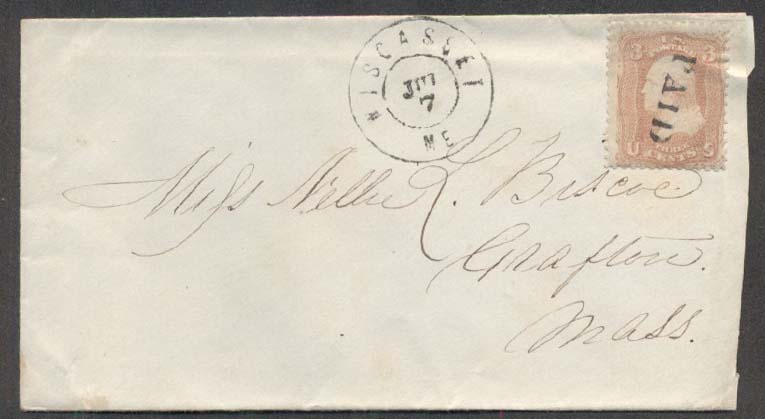 WISCASSET
JUL
7
ME
3 U.S. 3
POSTAGE
PAID
THREE
U CENTS S
Miss Nellie L. Biscoe
Grafton.
Mass.